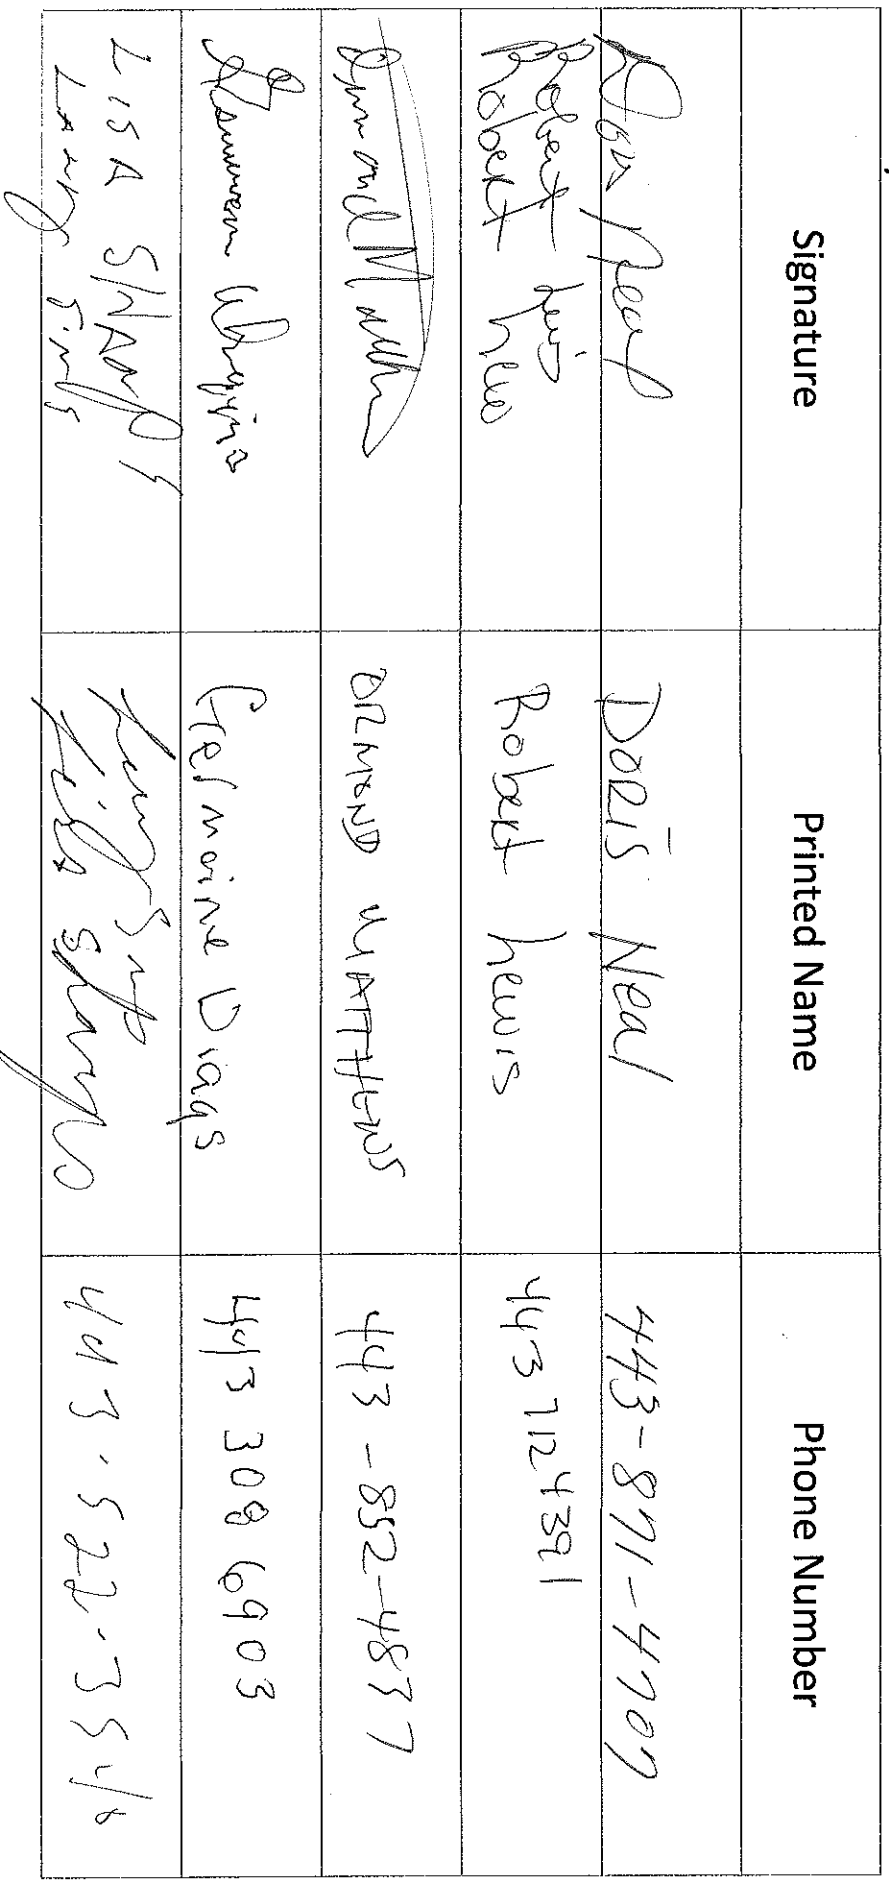 Signature
Printed Name
Phone Number
Doris Neal
DORIS Neal
443-871-4707
Robert Lewis
Robert Lewis
Robert Lewis
443 712 4391
Ormond Matthews
ORMOND MATTHEWS
443-852-4837
Germaine
Germaine Diggs
443 308 6903
LISA SHARPS
Larry
Lisa Sharps
443-522-354